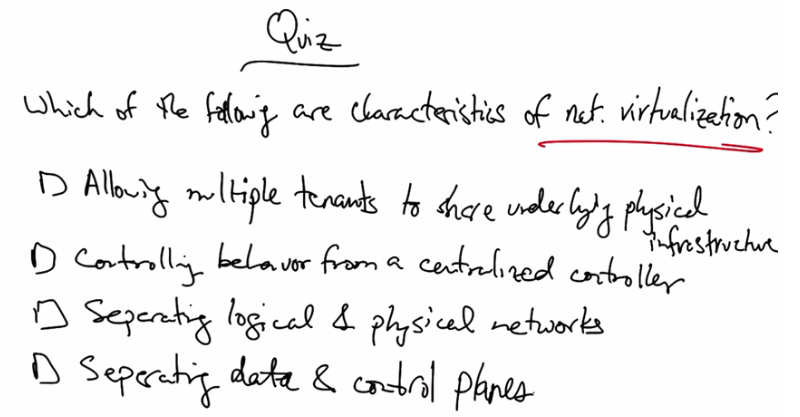 Quiz
Which of the following are characteristics of net. virtualization?
Allowing multiple tenants to share underlying physical
infrastructure
Controlling behavior from a centralized controller
Separating logical & physical networks
Separating data & control planes